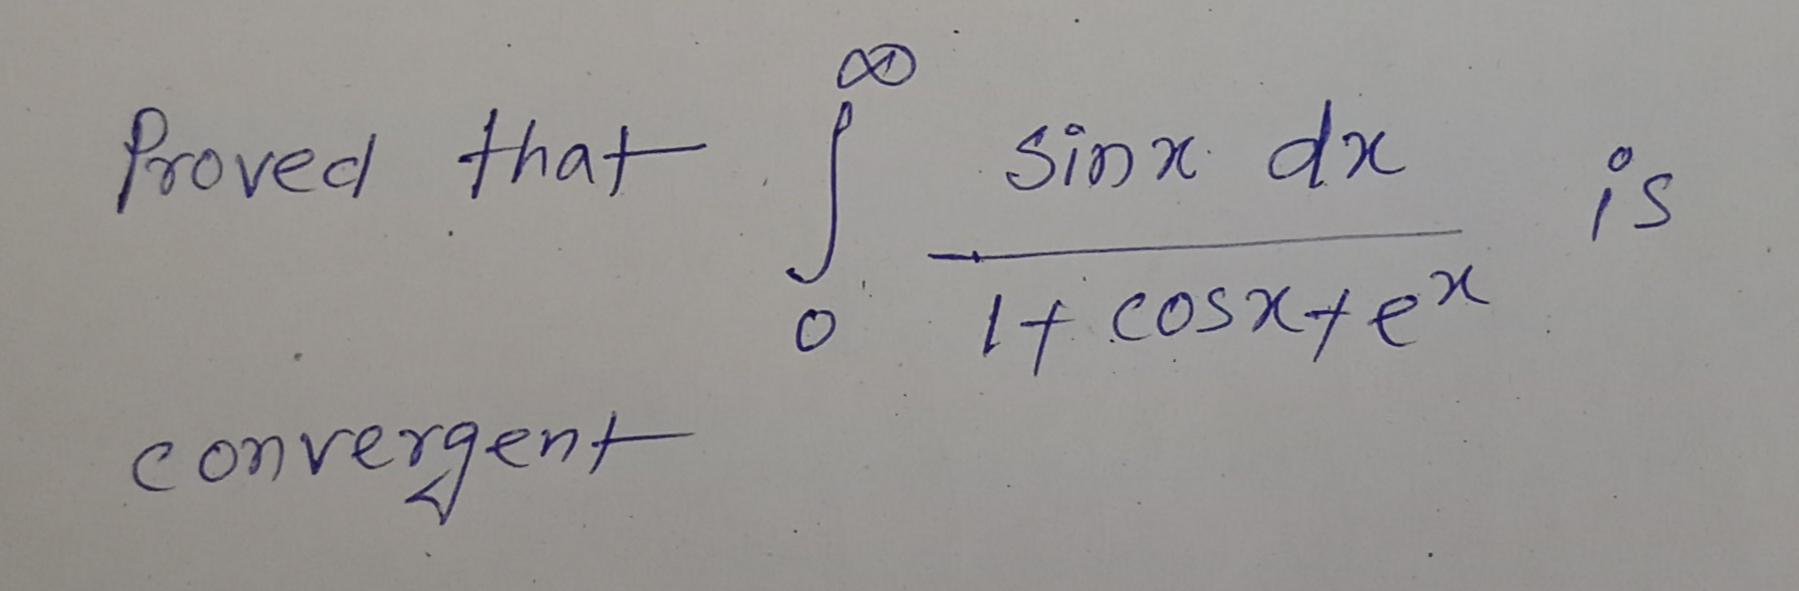 Proved that ∫₀^∞ sinx dx / 1+ cosx+e^x is
convergent